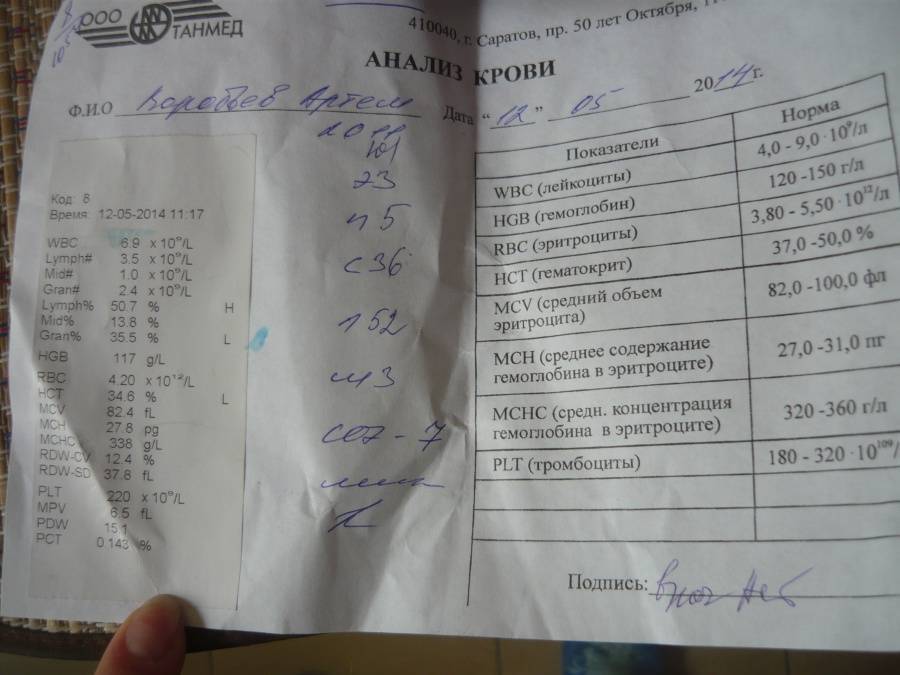 ООО
ТАНМЕД
410040, г. Саратов, пр. 50 лет Октября,
АНАЛИЗ КРОВИ
Ф.И.О Воробьев Артем Дата “12” 05 2014г.
Код: 8
Время: 12-05-2014 11:17
WBC 6.9 x 10⁹/L
Lymph# 3.5 x 10⁹/L
Mid# 1.0 x 10⁹/L
Gran# 2.4 x 10⁹/L
Lymph% 50.7 % H
Mid% 13.8 %
Gran% 35.5 % L
HGB 117 g/L
RBC 4.20 x 10¹²/L
HCT 34.6 % L
MCV 82.4 fL
MCH 27.8 pg
MCHC 338 g/L
RDW-CV 12.4 %
RDW-SD 37.8 fL
PLT 220 x 10⁹/L
MPV 6.5 fL
PDW 15.1
PCT 0.143 %
э3
п5
с36
л52
м3
соэ - 7
Показатели Норма
WBC (лейкоциты) 4,0 - 9,0 · 10⁹/л
HGB (гемоглобин) 120 -150 г/л
RBC (эритроциты) 3,80 - 5,50 · 10¹²/л
HCT (гематокрит) 37,0 -50,0 %
MCV (средний объем
эритроцита) 82,0 -100,0 фл
MCH (среднее содержание
гемоглобина в эритроците) 27,0 -31,0 пг
MCHC (средн. концентрация
гемоглобина в эритроците) 320 -360 г/л
PLT (тромбоциты) 180 - 320 · 10¹⁰⁹/л
Подпись: